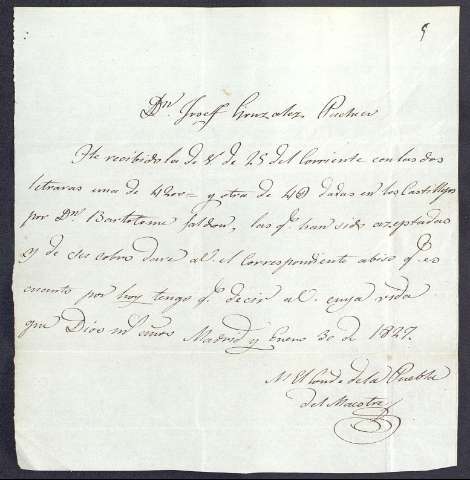 9
Dn. Josef Gonzalez. Pacheco
He recibido la de V de 25 del Corriente con las dos
letras una de 4200 = y otra de 4D dadas en los Castillejos
por Dn. Bartolome faldon, las q.e han sido azeptadas
y de su cobro dare al. el Correspondiente abiso q.e es
cuanto por hoy tengo q.e decir al. cuya vida
gue Dios ms. años Madrid y Enero 30 de 1827.
El Conde de la Puebla
del Maestre